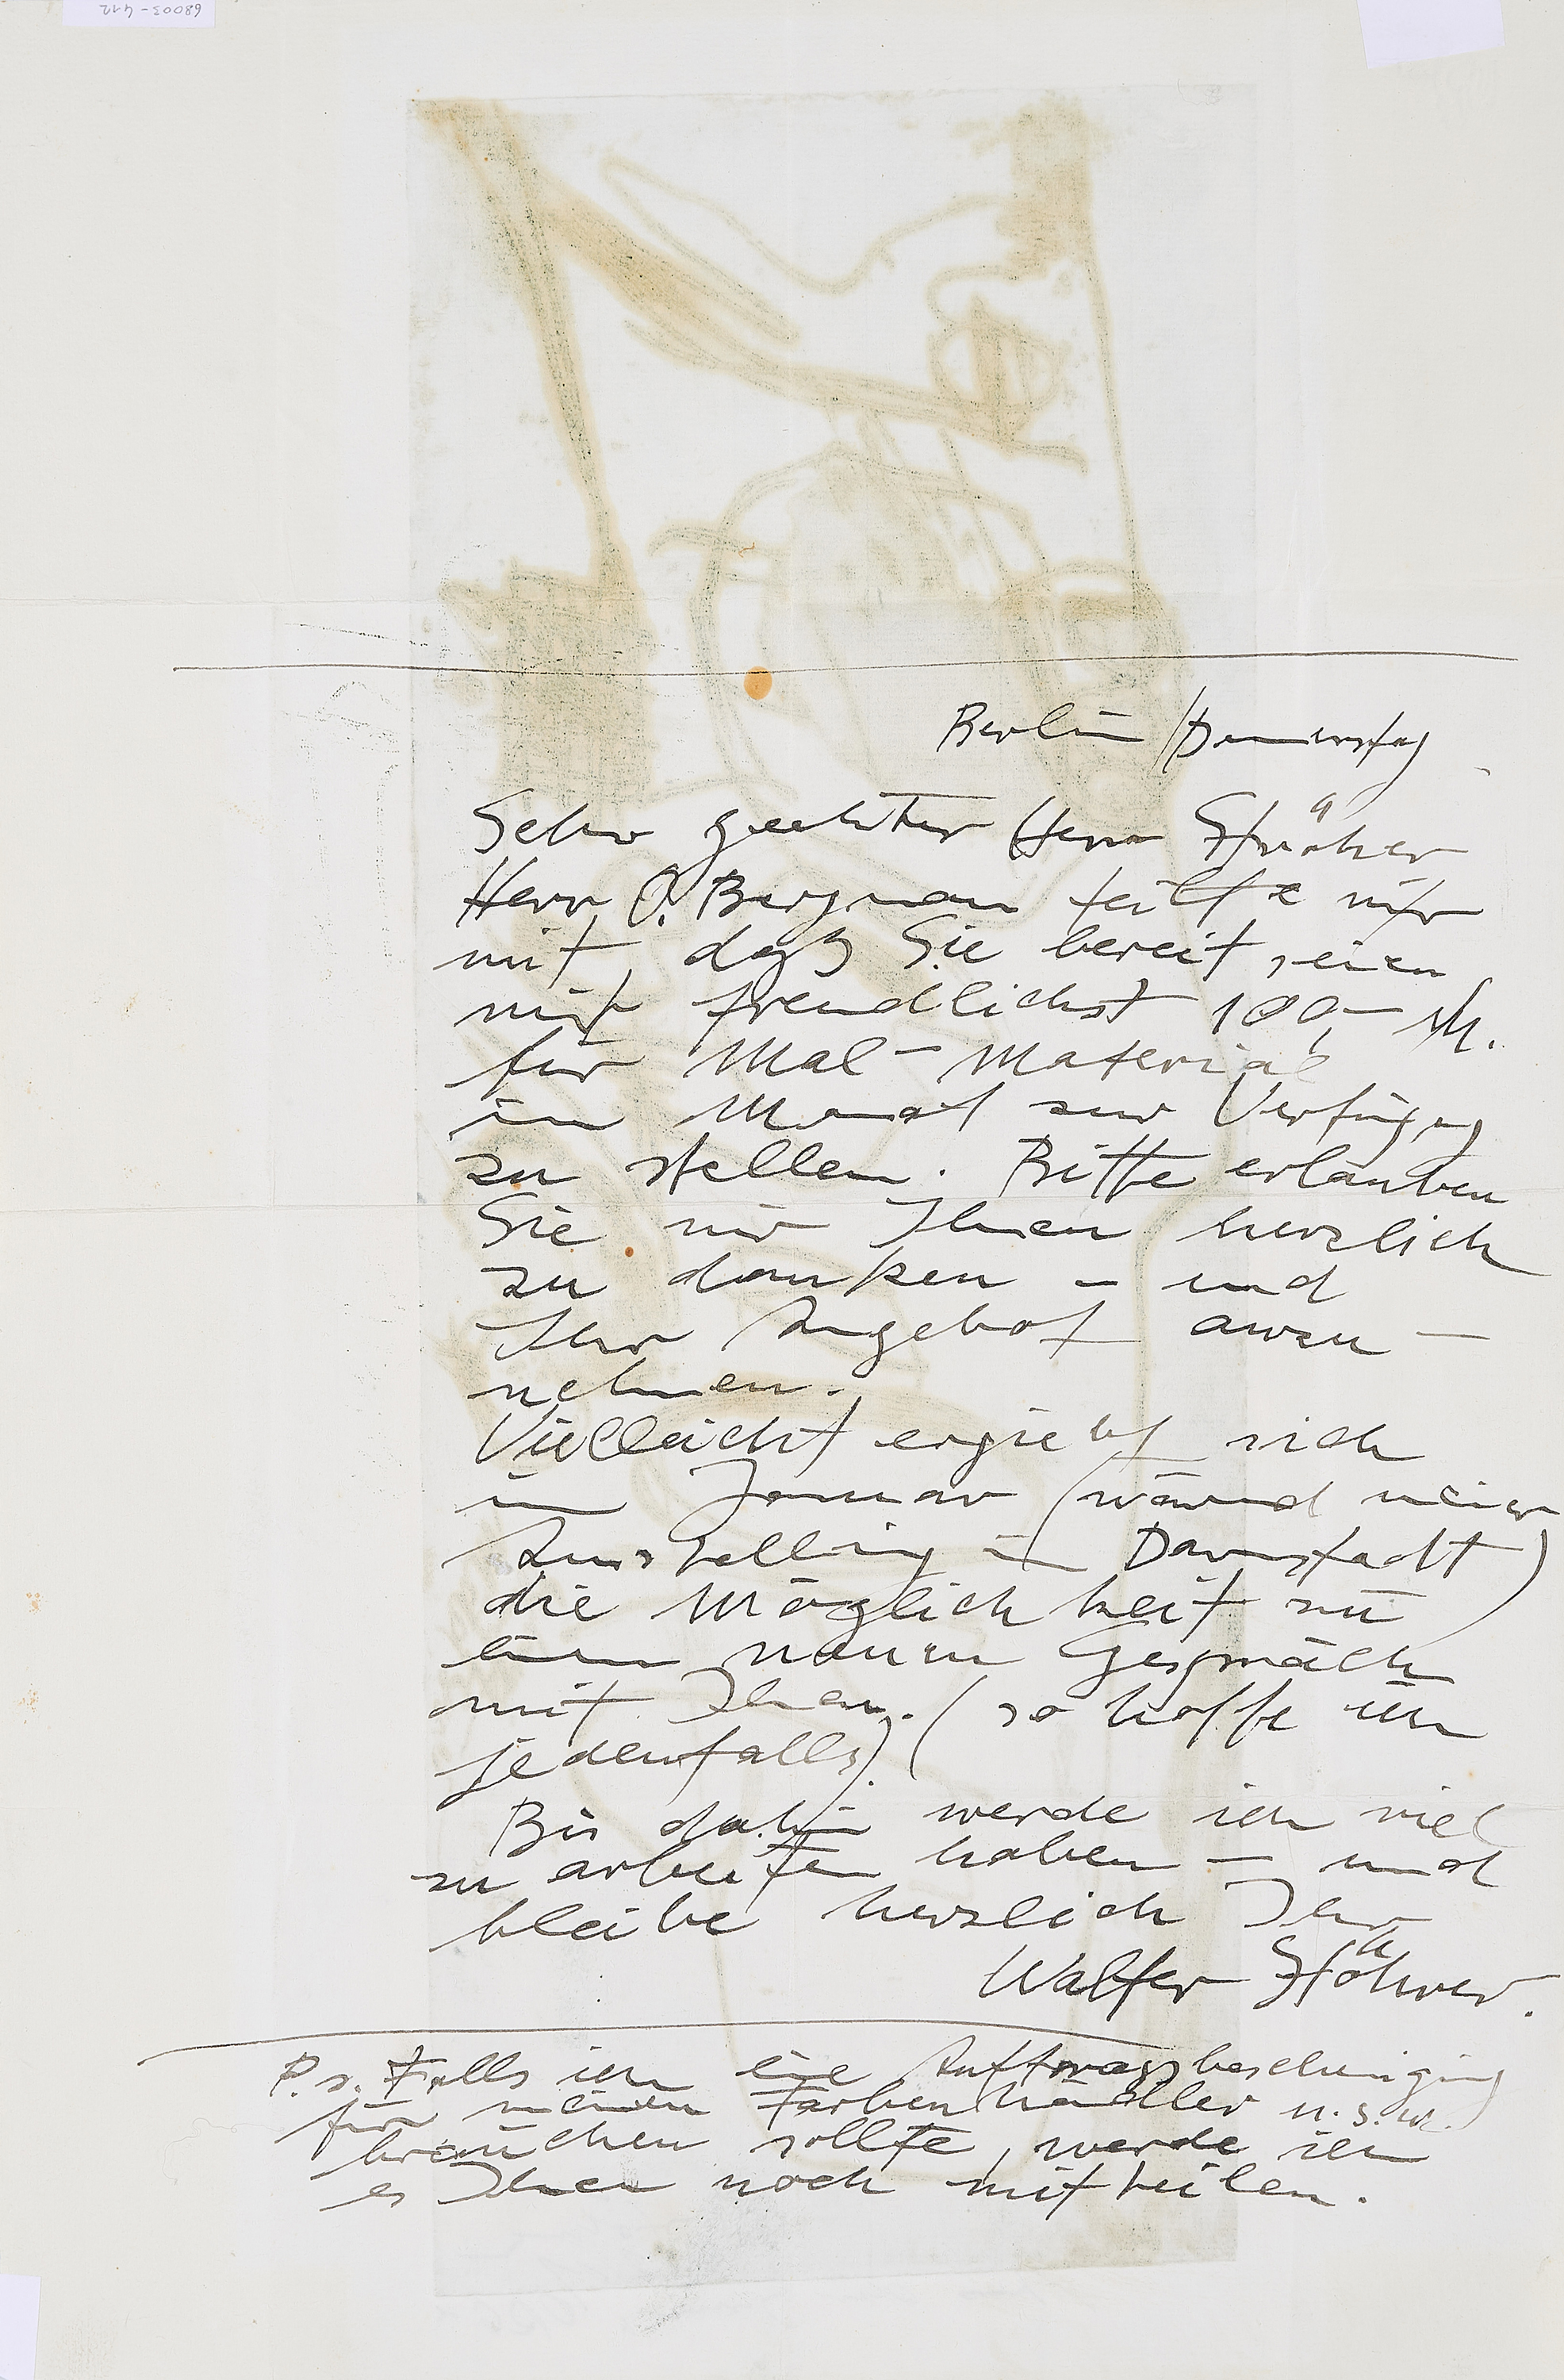 68003-412
Berlin / Donnerstag
Sehr geehrter Herr Ströher
Herr O. Bergman teilte mir
mit, daß Sie bereit seien
mir freundlichst 100,- M.
für Mal-Material
im Monat zur Verfügung
zu stellen. Bitte erlauben
Sie mir Ihnen herzlich
zu danken - und
Ihr Angebot anzu-
nehmen.
Vielleicht ergiebt sich
im Januar (wärend meiner
Ausstellung in Darmstadt)
die Möglichkeit zu
einem neuen Gespräch
mit Ihnen. (so hoffe ich
jedenfalls).
Bis dahin werde ich viel
zu arbeiten haben - und
bleibe herzlich Ihr
Walter Stöhrer.
P.s. Falls ich eine Auftragsbescheinigung
für meinen Farbenhändler u.s.w.
brauchen sollte, werde ich
es Ihnen noch mitteilen.